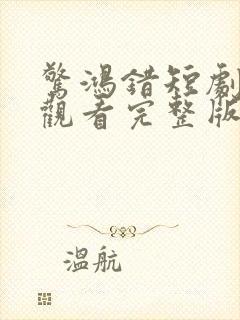 驚鴻錯短劇
觀看完整版
溫航